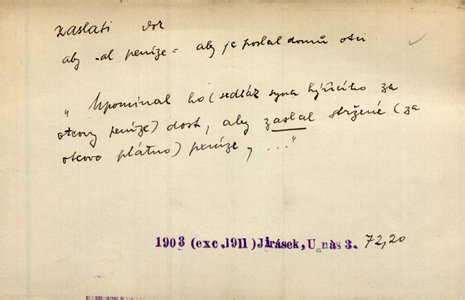 zaslati dok
aby -al peníze = aby je poslal domů otci
„Upomínal ho (sedlák syna hýřícího za
otcovy peníze) dost, aby zaslal stržené (za
otcovo plátno) peníze, ..."
1903 (exc. 1911) Jirásek, U nás 3. 72,20